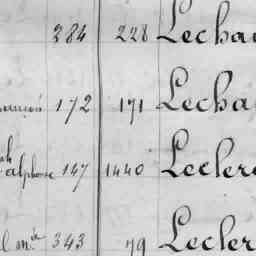 284 228 Lecha
172 171 Lecha
alphonse 147 1440 Lecler
343 79 Lecler